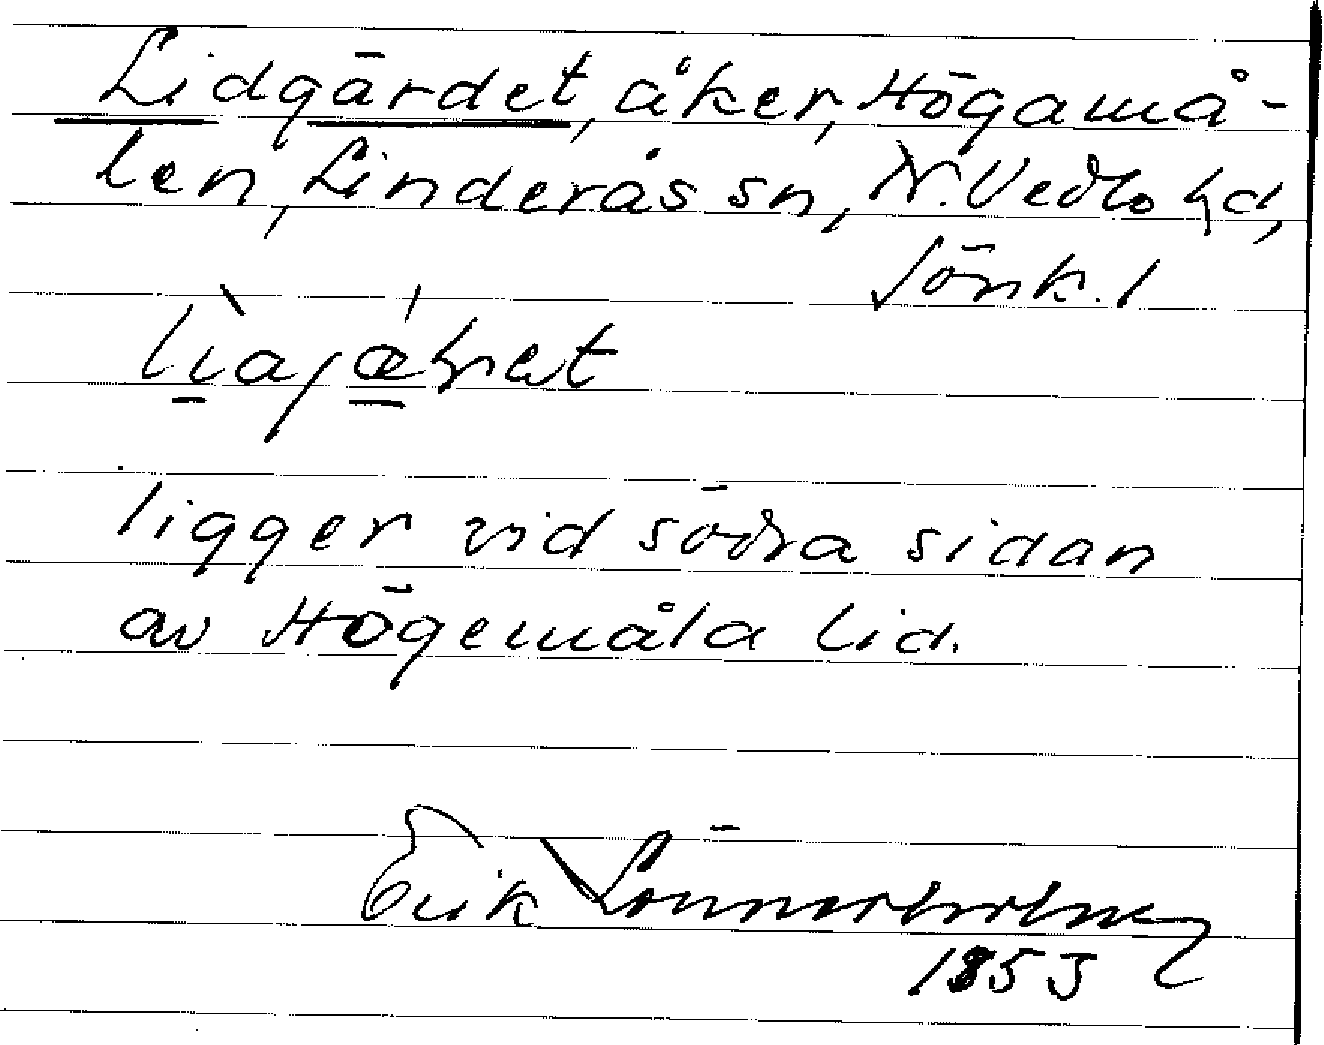 Lidgärdet, åker, Högamå-
len, Linderås sn, N. Vedbo hd,
Jönk. l
ligger vid södra sidan
av Högemåla lid.
Erik Lönnerholm
1853